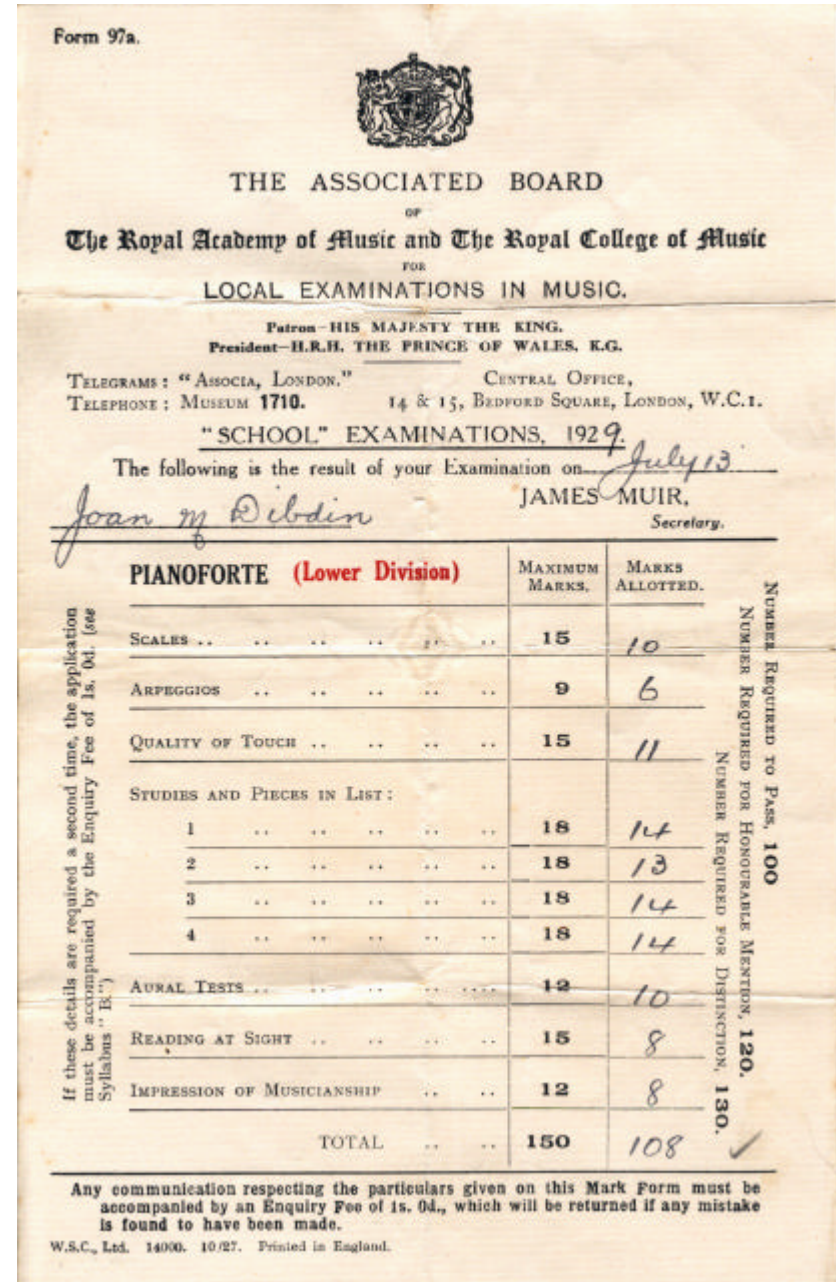 Form 97a.
THE ASSOCIATED BOARD
OF
The Royal Academy of Music and The Royal College of Music
FOR
LOCAL EXAMINATIONS IN MUSIC.
Patron—HIS MAJESTY THE KING.
President—H.R.H. THE PRINCE OF WALES, K.G.
TELEGRAMS: "ASSOCIA, LONDON." CENTRAL OFFICE,
TELEPHONE: MUSEUM 1710. 14 & 15, BEDFORD SQUARE, LONDON, W.C.1.
"SCHOOL" EXAMINATIONS, 1929.
The following is the result of your Examination on July 13
JAMES MUIR,
Joan M Dibdin Secretary.
PIANOFORTE (Lower Division) MAXIMUM MARKS. MARKS ALLOTTED.
SCALES .. .. .. .. .. .. 15 10
ARPEGGIOS .. .. .. .. .. 9 6
QUALITY OF TOUCH .. .. .. .. 15 11
STUDIES AND PIECES IN LIST:
1 .. .. .. .. .. 18 14
2 .. .. .. .. .. 18 13
3 .. .. .. .. .. 18 14
4 .. .. .. .. .. 18 14
AURAL TESTS .. .. .. .. .... 12 10
READING AT SIGHT .. .. .. .. 15 8
IMPRESSION OF MUSICIANSHIP .. .. 12 8
TOTAL .. .. 150 108
If these details are required a second time, the application
must be accompanied by the Enquiry Fee of 1s. 0d. (see
Syllabus "B.")
NUMBER REQUIRED TO PASS, 100
NUMBER REQUIRED FOR HONOURABLE MENTION, 120.
NUMBER REQUIRED FOR DISTINCTION, 130.
Any communication respecting the particulars given on this Mark Form must be
accompanied by an Enquiry Fee of 1s. 0d., which will be returned if any mistake
is found to have been made.
W.S.C., Ltd. 14000. 10/27. Printed in England.